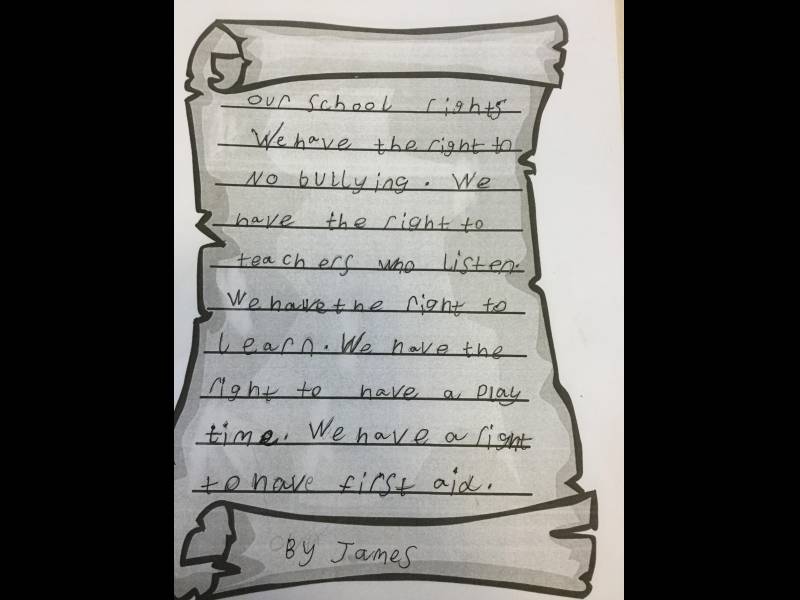 our school rights
We have the right to
No bullying. We
have the right to
teachers who listen.
We have the right to
learn. We have the
right to have a play
time. We have a right
to have first aid.
By James